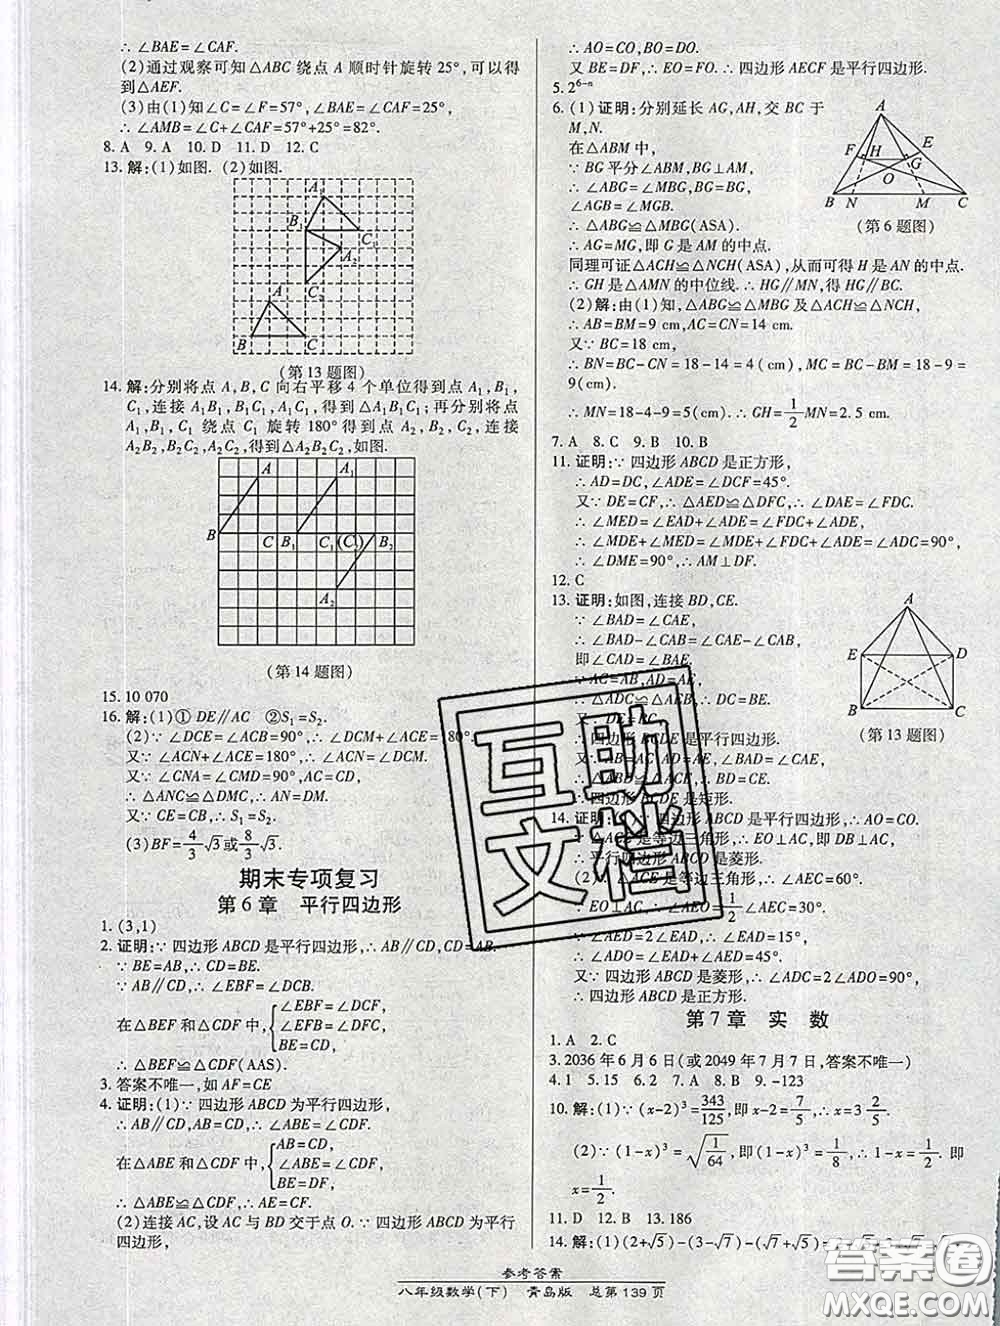 ∴ ∠BAE=∠CAF.
(2)通过观察可知△ABC 绕点 A 顺时针旋转 25°,可以得
到△AEF.
(3)由(1)知∠C=∠F=57°,∠BAE=∠CAF=25°,
∴ ∠AMB=∠C+∠CAF=57°+25°=82°.
8. A 9. A 10. D 11. D 12. C
13. 解:(1)如图. (2)如图.
A₁
B₁
C₁
A₂
C₂
A
B
C
(第 13 题图)
14. 解:分别将点 A,B,C 向右平移 4 个单位得到点 A₁,B₁,
C₁,连接 A₁B₁,B₁C₁,A₁C₁,得到△A₁B₁C₁;再分别将点
A₁,B₁,C₁ 绕点 C₁ 旋转 180°得到点 A₂,B₂,C₂,连接
A₂B₂,B₂C₂,A₂C₂,得到△A₂B₂C₂,如图.
A A₁
B C B₁ C₁(C₂) B₂
A₂
(第 14 题图)
15. 10 070
16. 解:(1)① DE∥AC ②S₁=S₂.
(2)∵ ∠DCE=∠ACB=90°,∴ ∠DCM+∠ACE=180°.
又∵ ∠ACN+∠ACE=180°,∴ ∠ACN=∠DCM.
又∵ ∠CNA=∠CMD=90°,AC=CD,
∴ △ANC≌△DMC,∴ AN=DM.
又∵ CE=CB,∴ S₁=S₂.
(3)BF=4/3√3或8/3√3.
期末专项复习
第 6 章 平行四边形
1. (3,1)
2. 证明:∵ 四边形 ABCD 是平行四边形,∴ AB∥CD,CD=AB.
∵ BE=AB,∴ CD=BE.
∵ AB∥CD,∴ ∠EBF=∠DCB.
在△BEF 和△CDF 中,{∠EBF=∠DCF, ∠EFB=∠DFC, BE=CD,
∴ △BEF≌△CDF(AAS).
3. 答案不唯一,如 AF=CE
4. 证明:(1)∵ 四边形 ABCD 为平行四边形,
∴ AB∥CD,AB=CD,∴ ∠ABE=∠CDF.
在△ABE 和△CDF 中,{AB=CD, ∠ABE=∠CDF, BE=DF,
∴ △ABE≌△CDF,∴ AE=CF.
(2)连接 AC,设 AC 与 BD 交于点 O.∵ 四边形 ABCD 为平行
四边形,
∴ AO=CO,BO=DO.
又 BE=DF,∴ EO=FO.∴ 四边形 AECF 是平行四边形.
5. 2⁶⁻ⁿ
6. (1)证明:分别延长 AG,AH,交 BC 于
M,N.
在△ABM 中,
∵ BG 平分∠ABM,BG⊥AM,
∴ ∠ABG=∠MBG,BG=BG,
∠AGB=∠MGB.
∴ △ABG≌△MBG(ASA).
∴ AG=MG,即 G 是 AM 的中点.
A
F H G E
O
B N M C
(第 6 题图)
同理可证△ACH≌△NCH(ASA),从而可得 H 是 AN 的中点.
∴ GH 是△AMN 的中位线.∴ HG∥MN,得 HG∥BC.
(2)解:由(1)知,△ABG≌△MBG 及△ACH≌△NCH,
∴ AB=BM=9 cm,AC=CN=14 cm.
又∵ BC=18 cm,
∴ BN=BC-CN=18-14=4(cm),MC=BC-BM=18-9=
9(cm).
∴ MN=18-4-9=5(cm).∴ GH=1/2MN=2.5 cm.
7. A 8. C 9. B 10. B
11. 证明:∵ 四边形 ABCD 是正方形,
∴ AD=DC,∠ADE=∠DCF=45°.
又∵ DE=CF,∴ △AED≌△DFC,∴ ∠DAE=∠FDC.
∴ ∠MED=∠EAD+∠ADE=∠FDC+∠ADE,
∴ ∠MDE+∠MED=∠MDE+∠FDC+∠ADE=∠ADC=90°,
∴ ∠DME=90°,∴ AM⊥DF.
12. C
13. 证明:如图,连接 BD,CE.
∵ ∠BAD=∠CAE,
∴ ∠BAD-∠CAB=∠CAE-∠CAB,
即∠CAD=∠BAE.
又∵ AC=AB,AD=AE,
∴ △ADC≌△AEB,∴ DC=BE.
又∵ DE=BC,
∴ 四边形 BCDE 为平行四边形.
又∵ AB=AC,AD=AE,∠BAD=∠CAE,
∴ △ABD≌△ACE,∴ BD=CE.
∴ 四边形 BCDE 是矩形.
A
E D
B C
(第 13 题图)
14. 证明:(1)∵ 四边形 ABCD 是平行四边形,∴ AO=CO.
∵ △ACE 是等边三角形,∴ EO⊥AC,即 DB⊥AC,
∴ 平行四边形 ABCD 是菱形.
(2)∵ △ACE 是等边三角形,∴ ∠AEC=60°.
∵ EO⊥AC,∴ ∠AEO=1/2∠AEC=30°.
∵ ∠AED=2∠EAD,∴ ∠EAD=15°,
∴ ∠ADO=∠EAD+∠AED=45°.
又∵ 四边形 ABCD 是菱形,∴ ∠ADC=2∠ADO=90°,
∴ 四边形 ABCD 是正方形.
第 7 章 实 数
1. A 2. C
3. 2036 年 6 月 6 日(或 2049 年 7 月 7 日,答案不唯一)
4. 1 5. 15 6. 2 7. A 8. B 9. -123
10. 解:(1)∵ (x-2)³=343/125,即 x-2=7/5,∴ x=3 2/5.
(2)∵ (1-x)³=√(1/64),即(1-x)³=1/8,∴ 1-x=1/2.即
x=1/2.
11. D 12. B 13. 186
14. 解:(1)(2+√5)-(3-√7)-(√7+√5)=
参考答案
八年级数学(下) 青岛版 总第 139 页
互助文档
答案卷
MXQE.COM